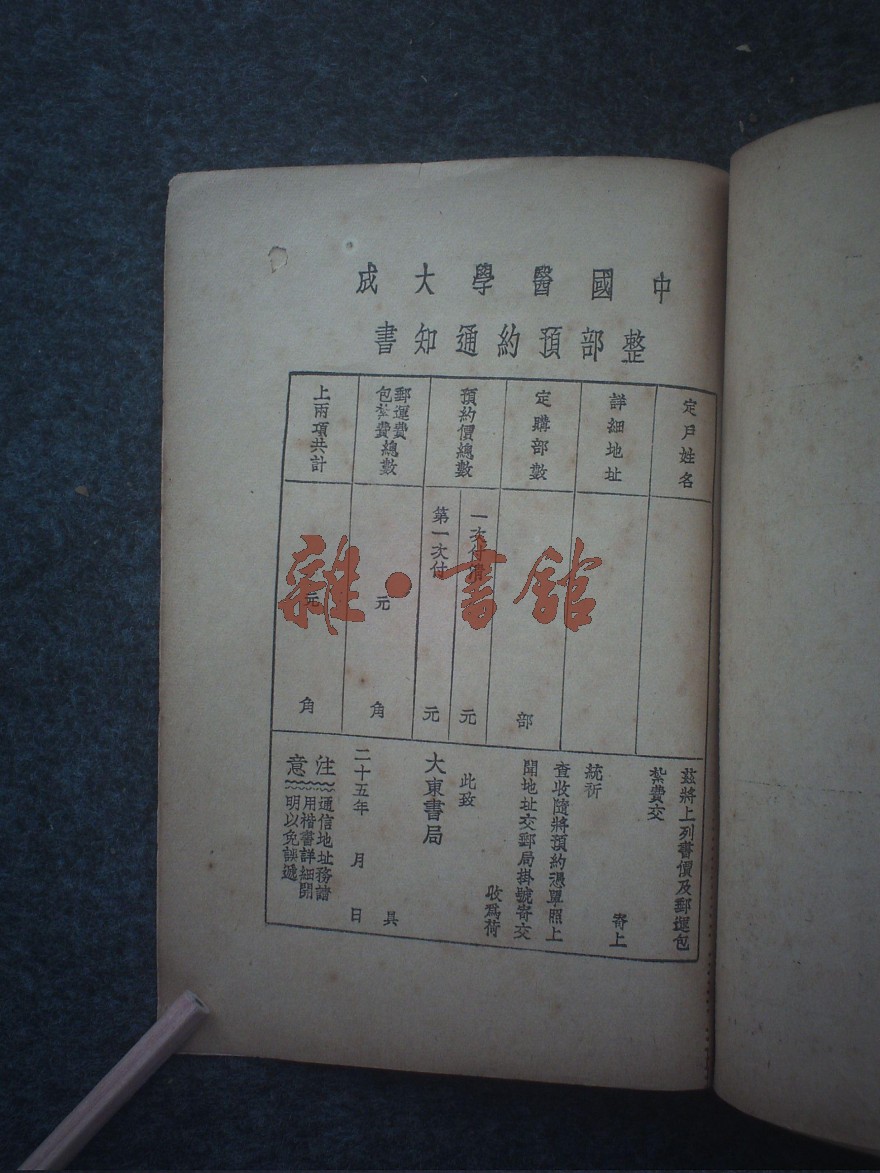 中國醫學大成
整部預約通知書
定戶姓名
詳細地址
定購部數
部
預約價總數
一次付清
元
第一次付
元
郵運費
包紮費總數
元
角
上兩項共計
元
角
茲將上列書價及郵運包
紮費交
寄上
統祈
查收隨將預約憑單照上
開地址交郵局掛號寄交
收爲荷
此致
大東書局
具
二十五年 月 日
注意
通信地址務請
用楷書詳細開
明以免誤遞
雜·書館